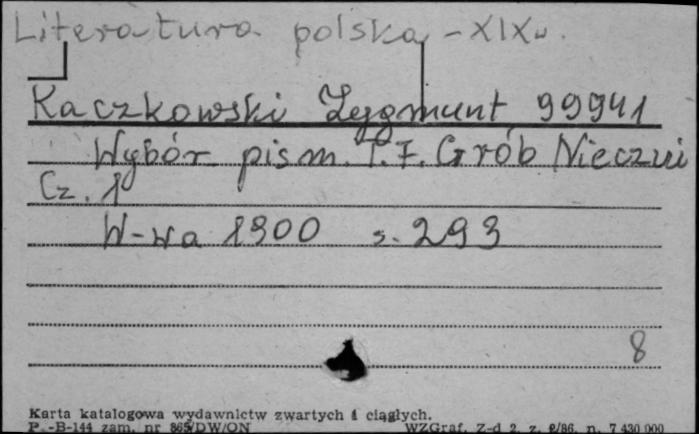 Literatura polska - XIX w.
Kaczkowski Zygmunt 99941
Wybór pism. T. 7. Grób Nieczui
Cz. 1
W-wa 1900 s. 293
8
Karta katalogowa wydawnictw zwartych i ciągłych.
P. -B-144 zam. nr 865/DW/ON WZGraf. Z-d 2. z. 2/86. n. 7 430 000